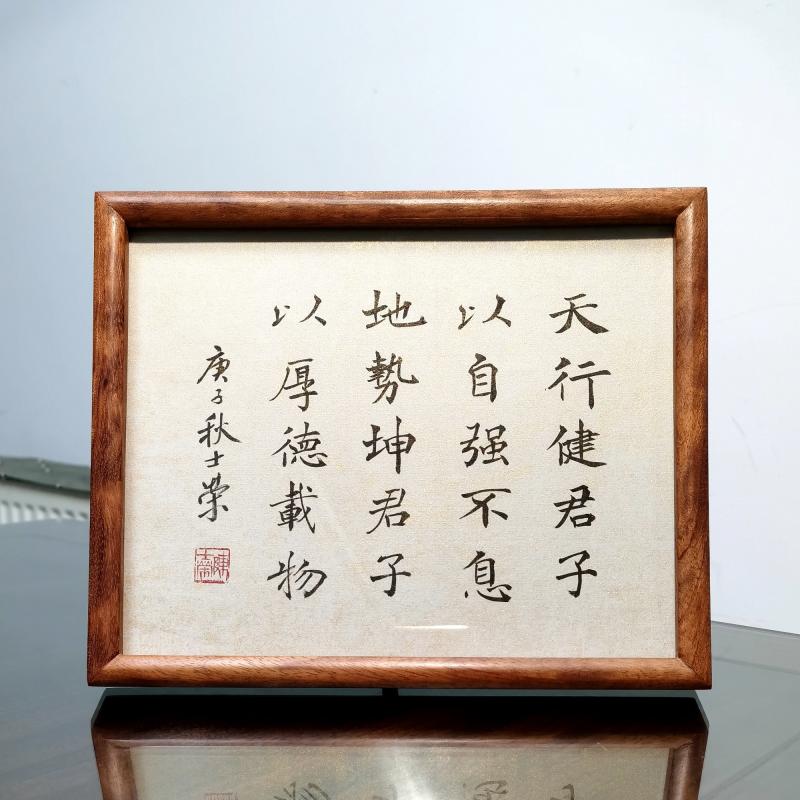 天行健君子
以自强不息
地勢坤君子
以厚德載物
庚子秋士榮
陳士榮